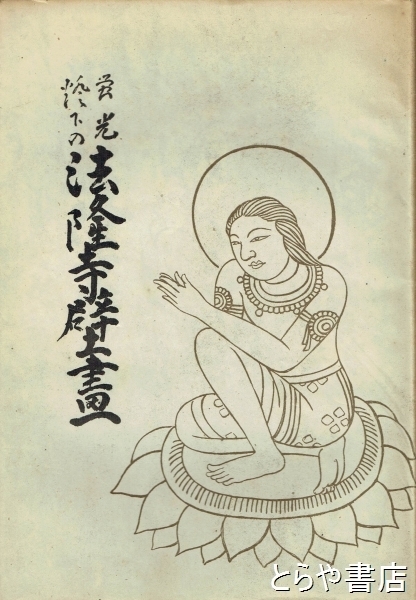 蛍光
燈下の
法隆寺壁画
とらや書店